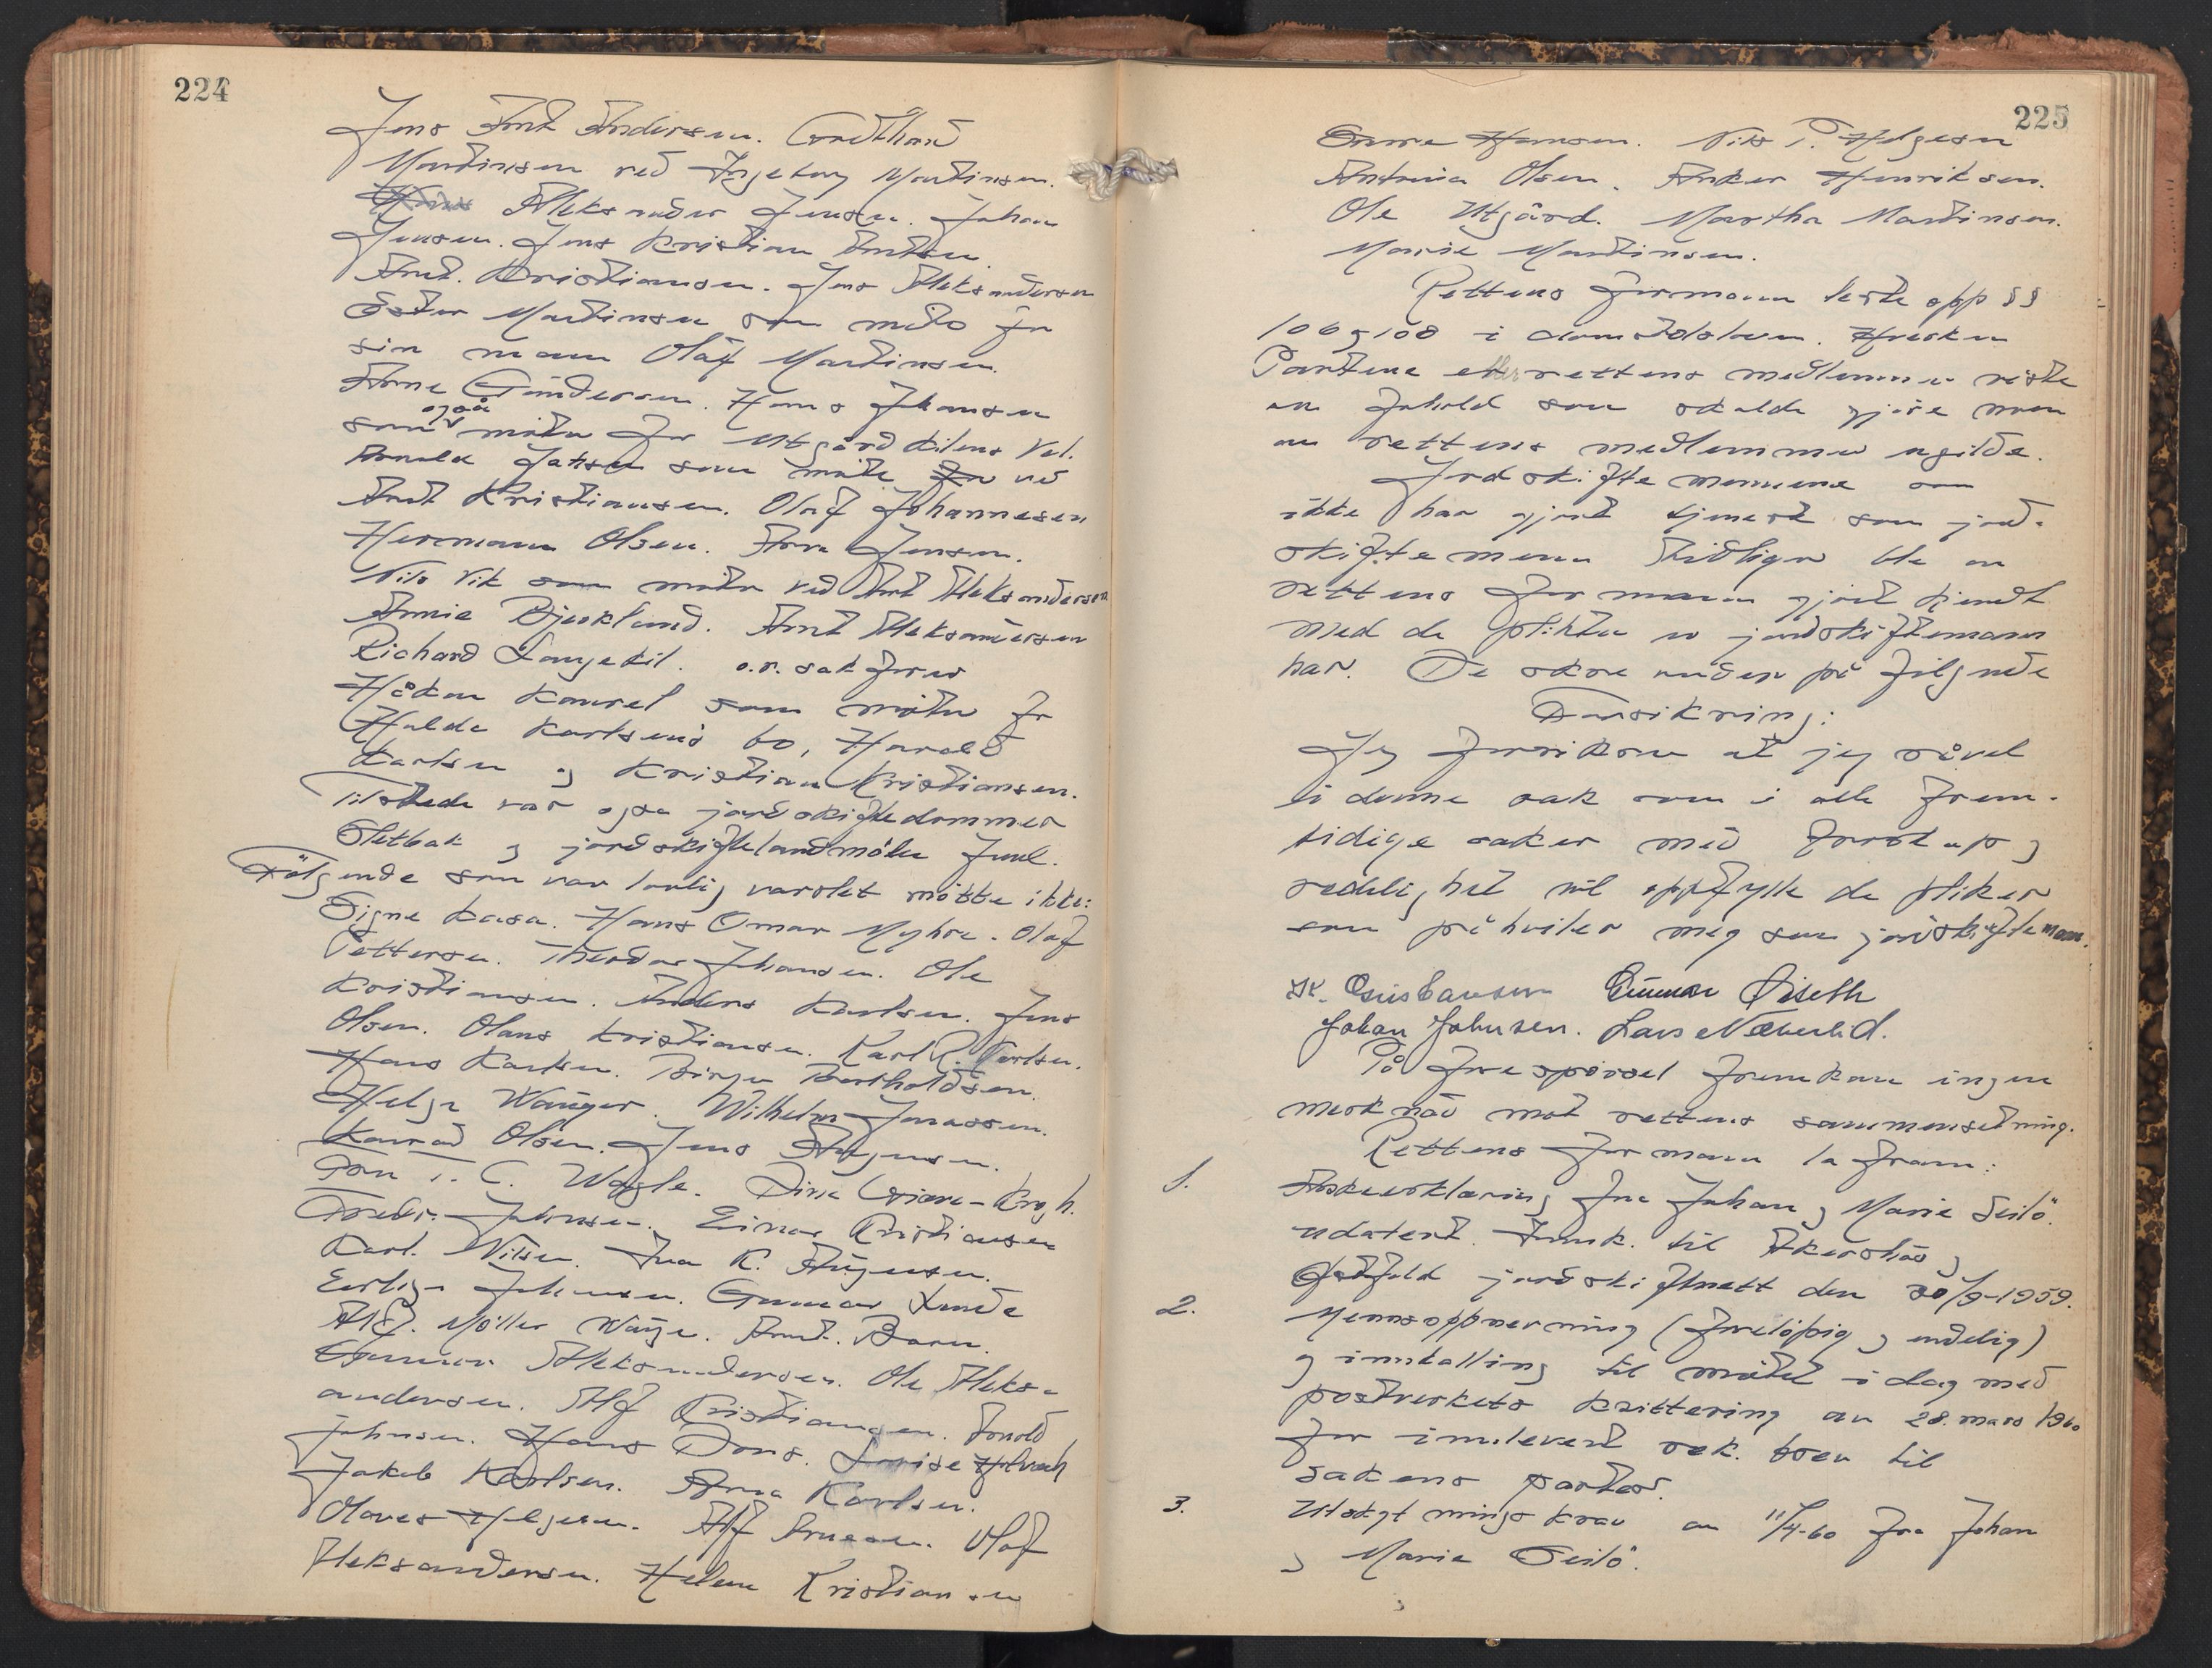 224
Jens Arnt Andersen. Gotthard
Martinsen ved Ingeborg Martinsen.
Aleksander Jensen. Johan
Jensen. Jens Kristian Arntsen.
Arnt. Kristiansen. Jens Aleksandersen
Ester Martinsen som møto for
sin mann Olaf Martinsen.
Arne Gundersen. Hans Johansen
som også møter for Utgårdkilens Vel.
Arnold Jahren som møte for ved
Arnt Kristiansen. Olaf Johannesen
Hermann Olsen. Arne Jensen.
Nils Vik som møter ved Arnt Aleksandersen
Annie Bjerklund. Arnt Aleksandersen
Richard Langekil. o.r. sakfører
Håkon Kaurel som møter for
Hulda Karlsens bo, Harald
Karlsen og Kristian Kristiansen.
Tilstede var også jordskiftedommer
Sletbak og jordskiftelandmåler Juul.
Følgende som var lovlig varslet møtte ikke:
Signe Kasa. Hans Omar Myhre. Olaf
Pettersen. Theodor Johansen. Ole
Kristiansen. Anders Karlsen. Jens
Olsen. Olaus Kristiansen. Karl R. Karlsen.
Hans Karlsen. Birger Bertholdsen.
Helge Wanger. Wilhelm Jonassen.
Konrad Olsen. Jens
T. C. Wagle.
Johnsen. Einar Kristiansen
Karl. Nilsen. R.
Erling Johnsen. Gunnar Lunde
Alf. Møller Arnt. Barm.
Gunnar Aleksandersen. Ole Aleks-
andersen. Alf Kristiansen. Arnold
Johnsen. Hans Dons. Louise
Jakob Karlsen. Anna Karlsen.
Olaves Helgesen. Alf Olaf
Aleksandersen. Helene Kristiansen
225
Hansen. Nils P. Helgesen
Antonia Olsen. Anker Henriksen.
Ole Utgård. Martha Martinsen.
Marie Martinsen.
Rettens formann leste opp §§
106 og 108 i domstolsloven. Hverken
Partene eller rettens medlemmer visste
om forhold som skulde gjøre noen
av rettens medlemmer ugilde.
Jordskiftemennene som
ikke har gjort tjeneste som jord-
skiftemenn tidligere ble av
rettens formann gjort kjendt
med de plikter en jordskiftemann
har. De skrev under på følgende
Forsikring:
Jeg forsikrer at jeg såvel
i denne sak som i alle frem-
tidige saker med troskap og
redelighet vil oppfylle de plikter
som påhviler meg som jordskiftemann.
Kr. Gustavsen Gunnar Øiseth
Johan Johnsen. Lars Næverlid.
På forespørsel fremkom ingen
merknad mot rettens sammensetning.
Rettens formann la fram:
1. Ankeerklæring fra Johan og Marie Seilö.
udatert. Innk. til Akershus og
Østfold jordskifterett den 30/9-1959.
2. Mennsoppnevning (foreløpig og endelig)
og innkalling til møtet i dag med
postverkets kvittering av 28. mars 1960
for innlevert rek. brev til
sakens parter.
3. Utskiftningskrav av 11/4-60 fra Johan
og Marie Seilö.